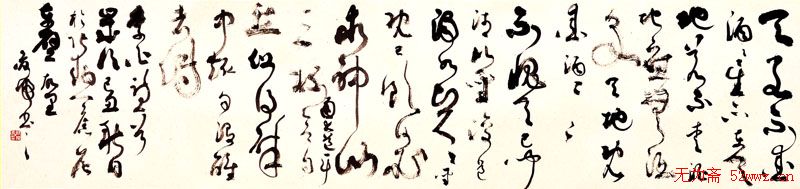 天若不爱
酒酒星不在天
地若不爱酒
地应无酒
泉天地既
爱酒爱酒
不愧天已闻
清比圣复道
浊如贤贤圣
既已饮何必
求神仙
三杯通大道一斗合自
然但得酒
中趣勿为醒
者传
李白诗
己丑秋月
无为斋 52wwz.cn